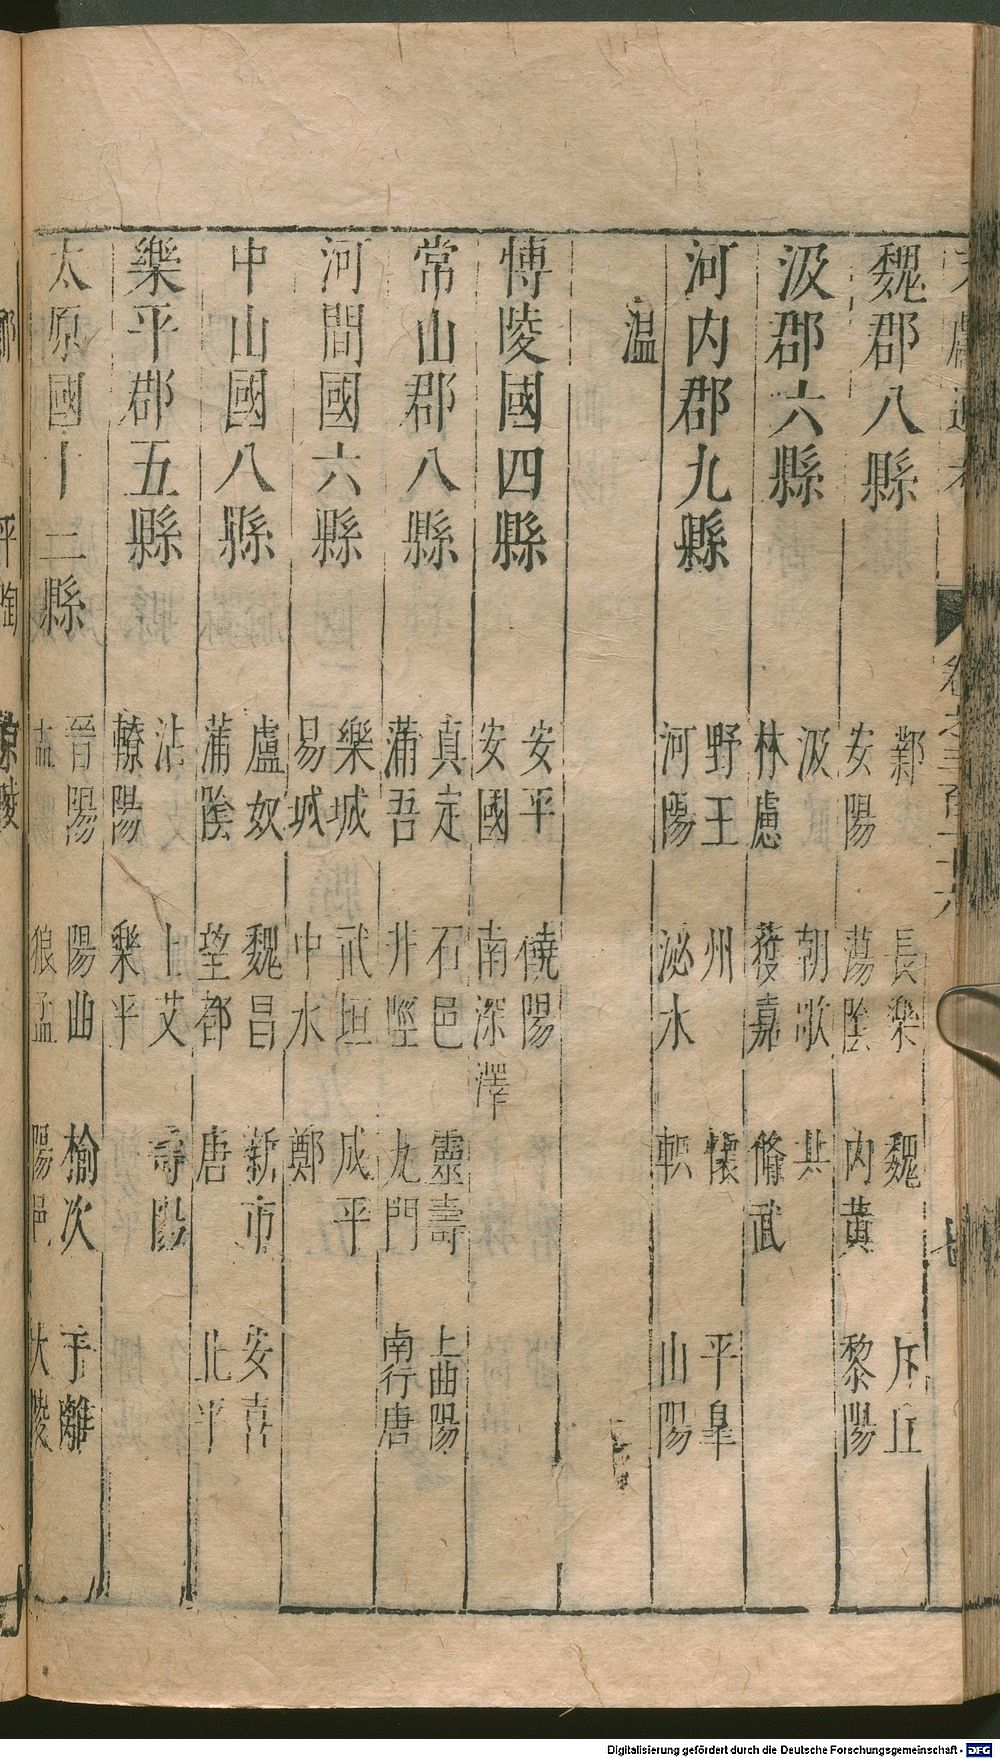 文獻通考 卷之三百十六 七
魏郡八縣 鄴 長樂 魏 斥丘
安陽 蕩陰 內黃 黎陽
汲郡六縣 汲 朝歌 共
林慮 獲嘉 脩武
河內郡九縣 野王 州 懷 平皐
河陽 泌水 軹 山陽
溫
博陵國四縣 安平 饒陽
安國 南深澤
常山郡八縣 真定 石邑 靈壽 上曲陽
蒲吾 井陘 九門 南行唐
河間國六縣 樂城 武垣 成平
易城 中水 鄭
中山國八縣 盧奴 魏昌 新市 安喜
蒲陰 望都 唐 北平
樂平郡五縣 沾 上艾 壽陽
轑陽 樂平
太原國十二縣 晉陽 陽曲 榆次 于離
盂 狼孟 陽邑 大陵
平陶
Digitalisierung gefördert durch die Deutsche Forschungsgemeinschaft - DFG